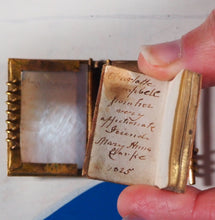 Charlotte
Campbele
from her
very
affectionate
friend
Mary Anne
Clarke
1825